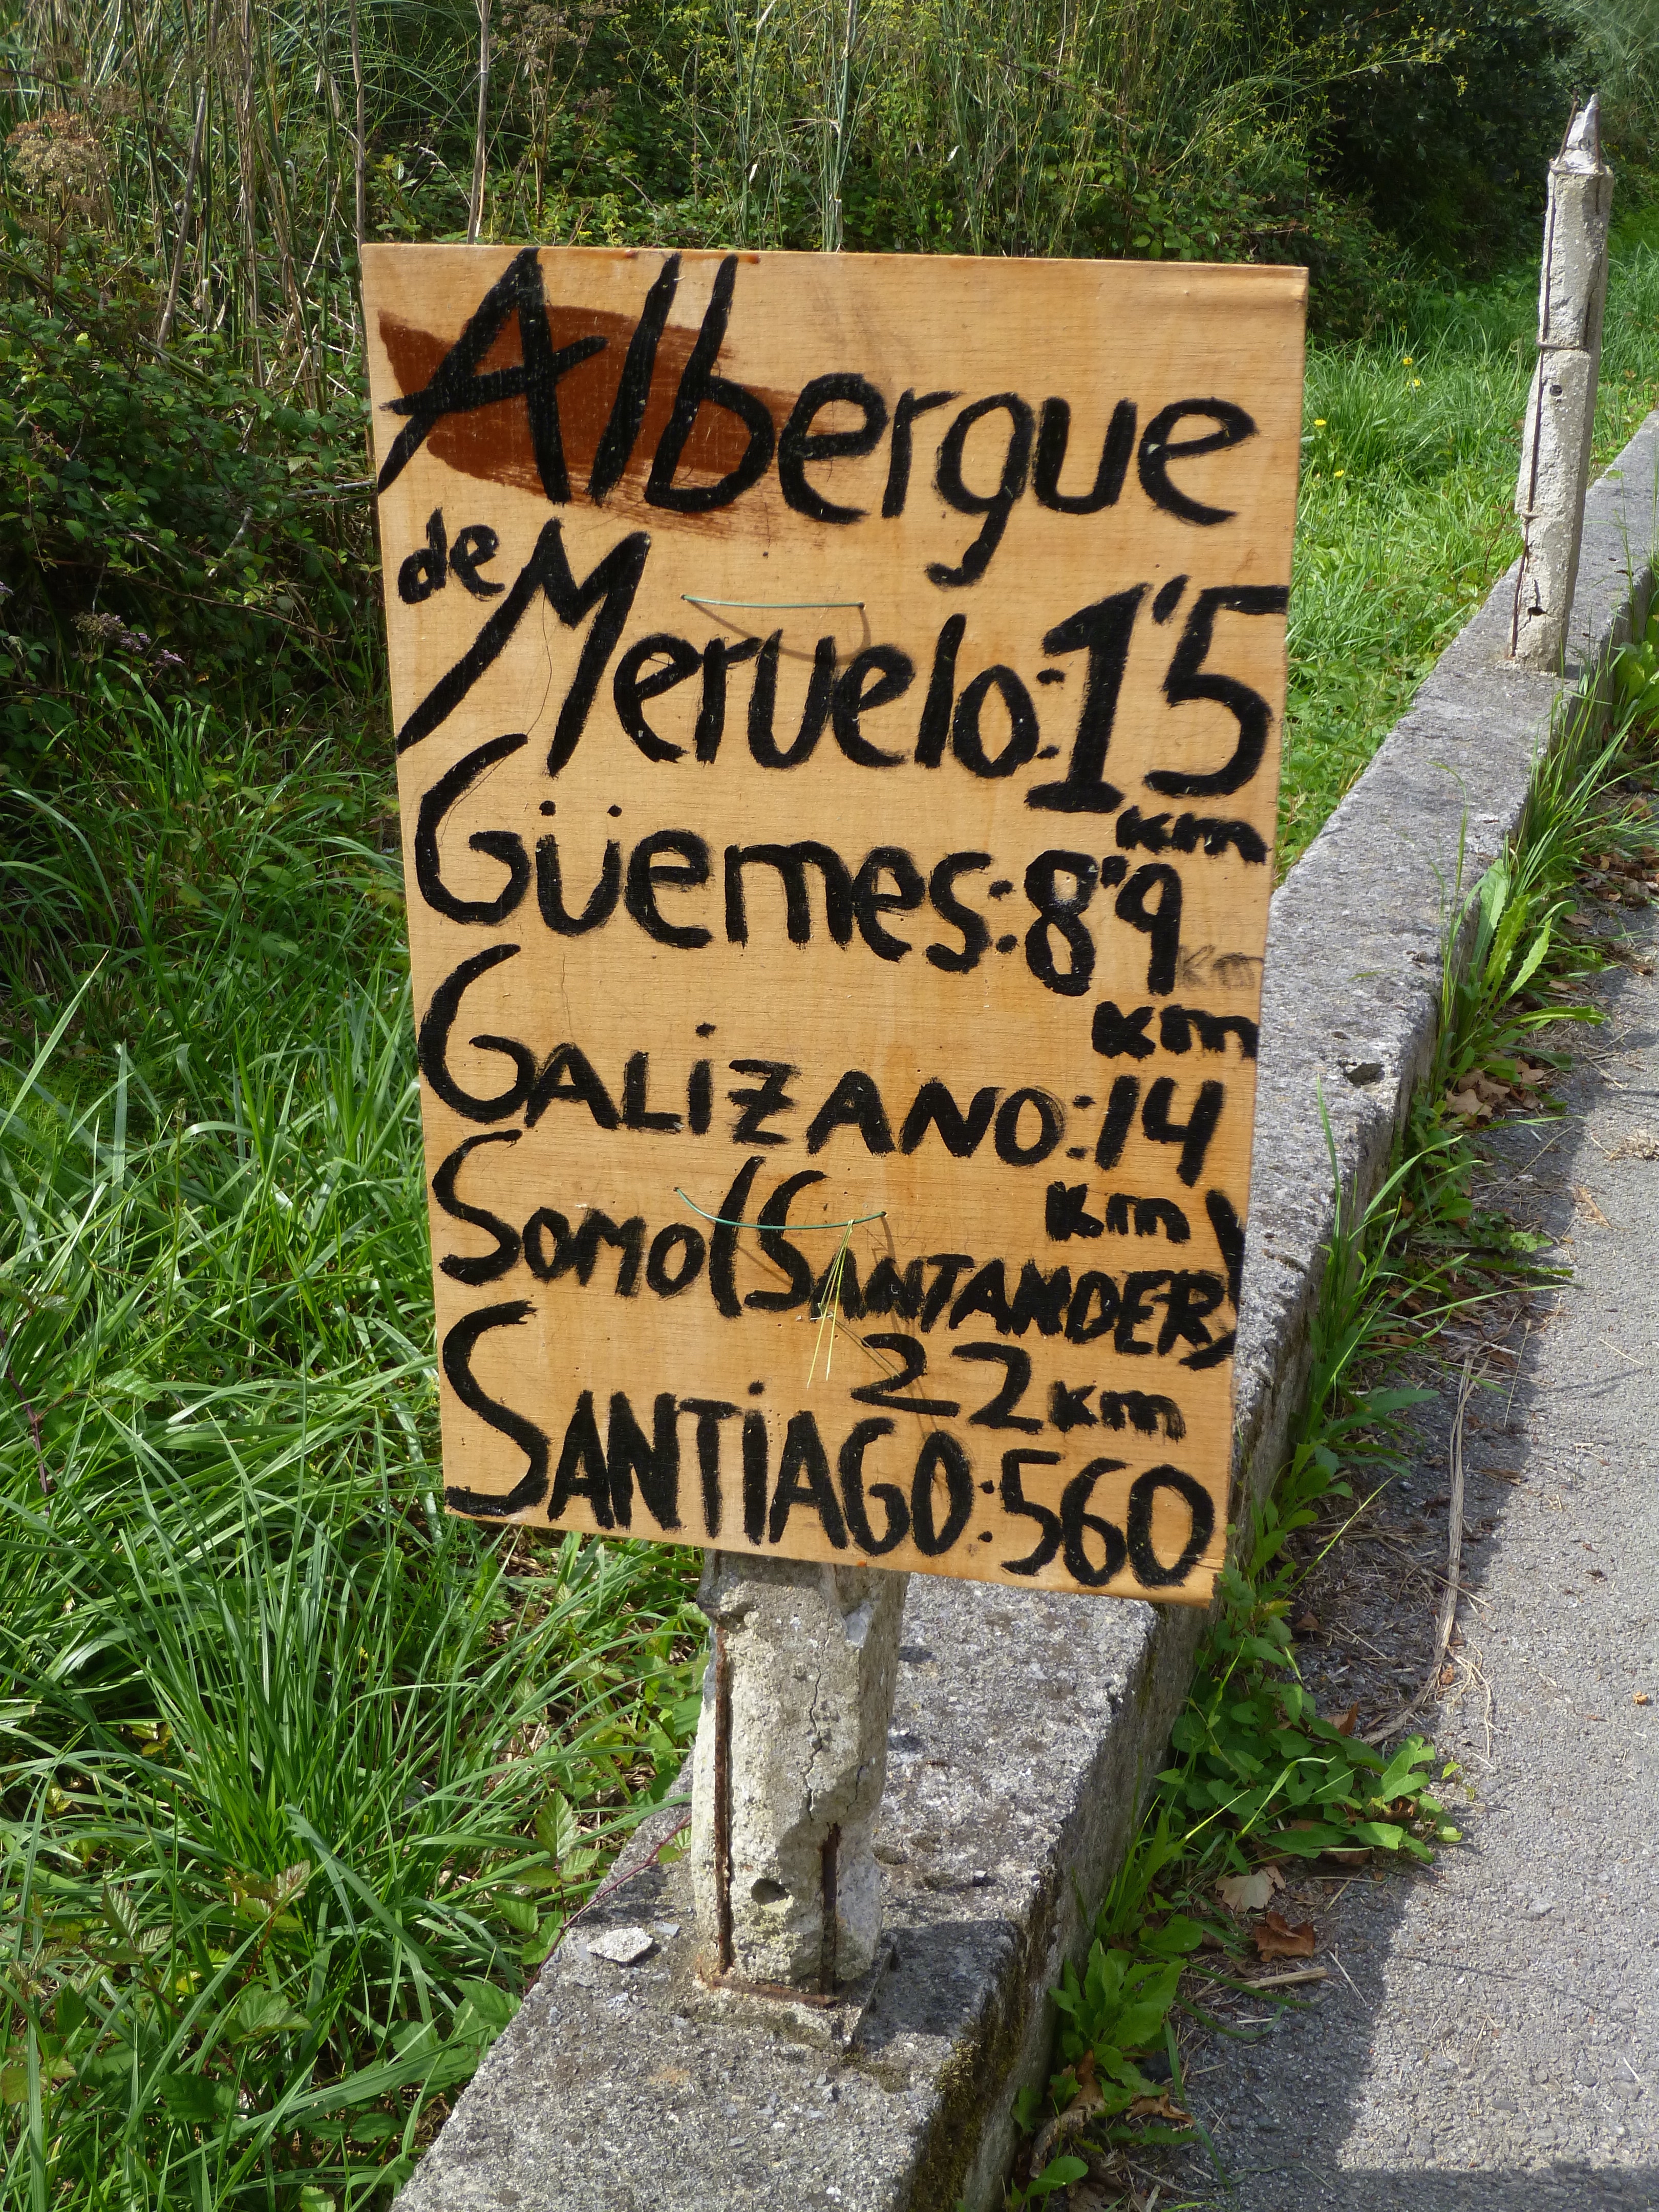 Albergue
de Meruelo: 1'5
km
Güemes: 8'9
km
km
GALiZANO: 14
km
SOMO (SANTANDER)
22 km
SANTiAGO: 560